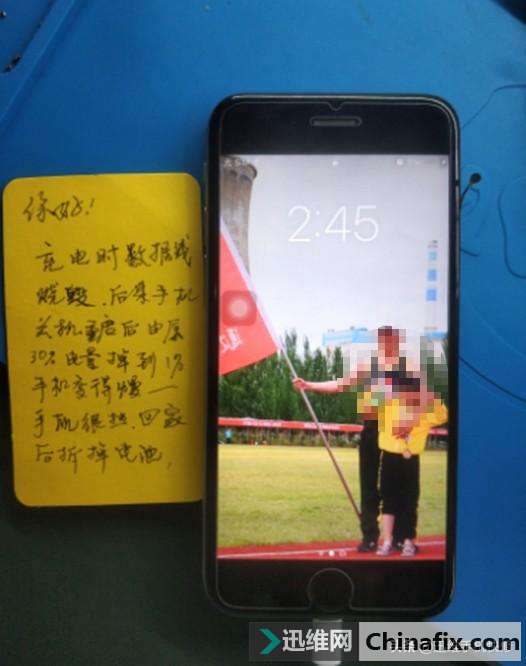 你好!
充电时数据线
烧毁.后来手机
关机重启后由原
30%电量掉到1%
手机变得慢一
手机很热.回家
后拆掉电池,
2:45
迅维网 Chinafix.com